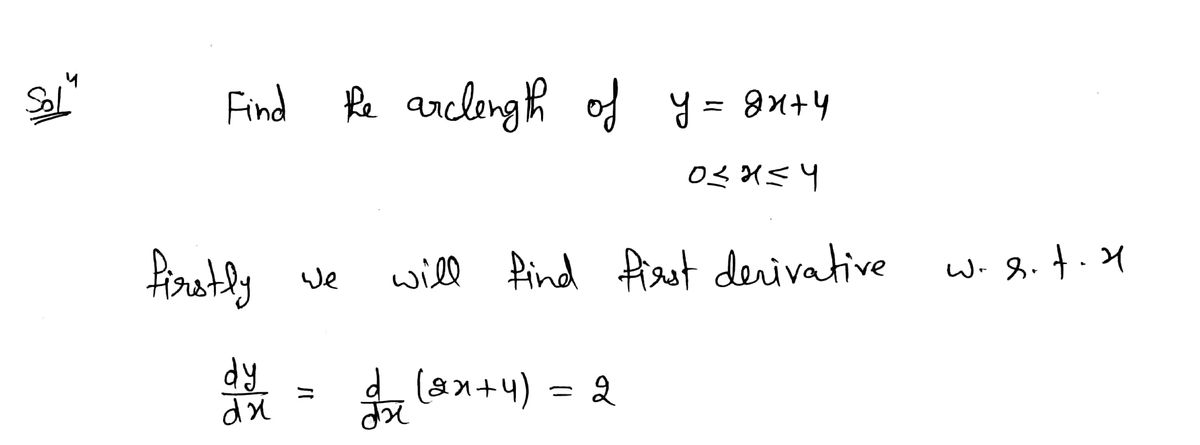 Solⁿ Find the arclength of y = 2x+4
0≤x≤4
firstly we will find first derivative w.r.t.x
dy/dx = d/dx (2x+4) = 2